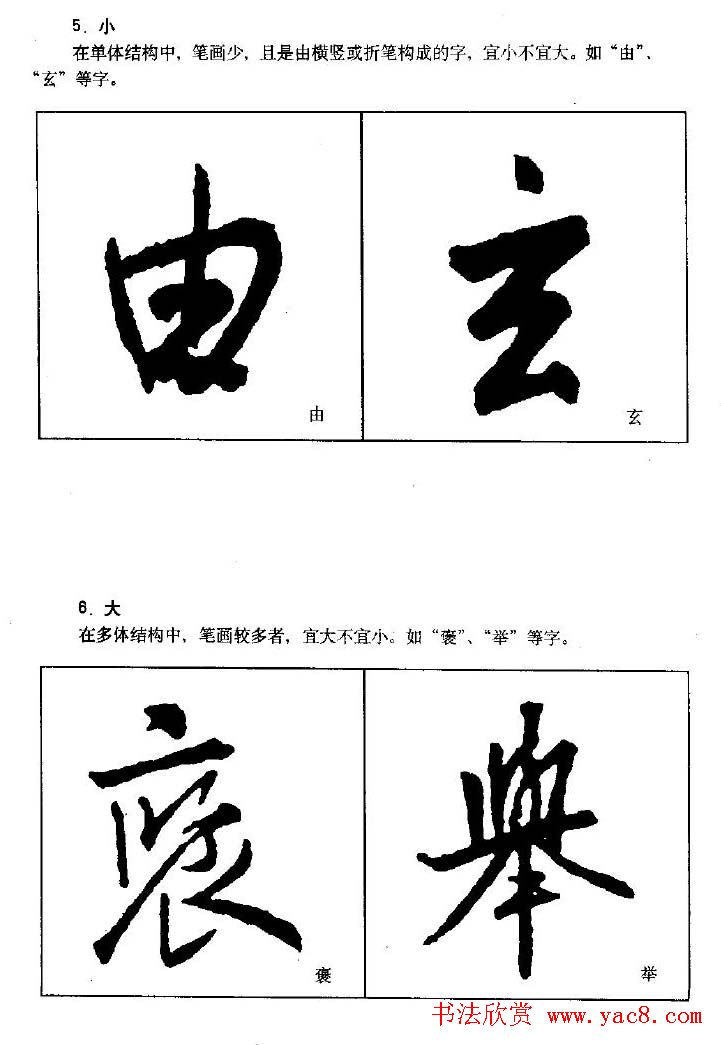 5. 小
在单体结构中，笔画少，且是由横竖或折笔构成的字，宜小不宜大。如“由”、
“玄”等字。
由 玄
由 玄
6. 大
在多体结构中，笔画较多者，宜大不宜小。如“褒”、“举”等字。
褒 舉
褒 举
书法欣赏 www.yac8.com